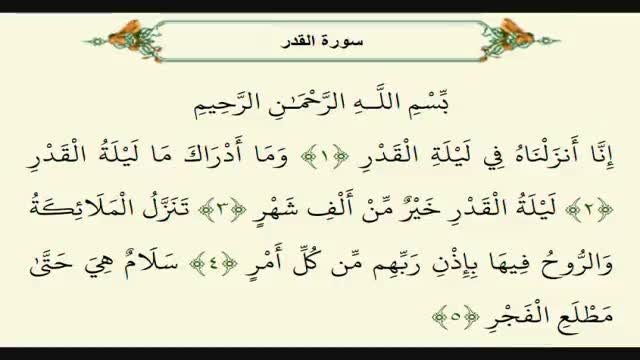 سورة القدر
بِّسْمِ اللَّـهِ الرَّحْمَـٰنِ الرَّحِيمِ
إِنَّا أَنزَلْنَاهُ فِي لَيْلَةِ الْقَدْرِ ﴿١﴾ وَمَا أَدْرَاكَ مَا لَيْلَةُ الْقَدْرِ
﴿٢﴾ لَيْلَةُ الْقَدْرِ خَيْرٌ مِّنْ أَلْفِ شَهْرٍ ﴿٣﴾ تَنَزَّلُ الْمَلَائِكَةُ
وَالرُّوحُ فِيهَا بِإِذْنِ رَبِّهِم مِّن كُلِّ أَمْرٍ ﴿٤﴾ سَلَامٌ هِيَ حَتَّىٰ
مَطْلَعِ الْفَجْرِ ﴿٥﴾